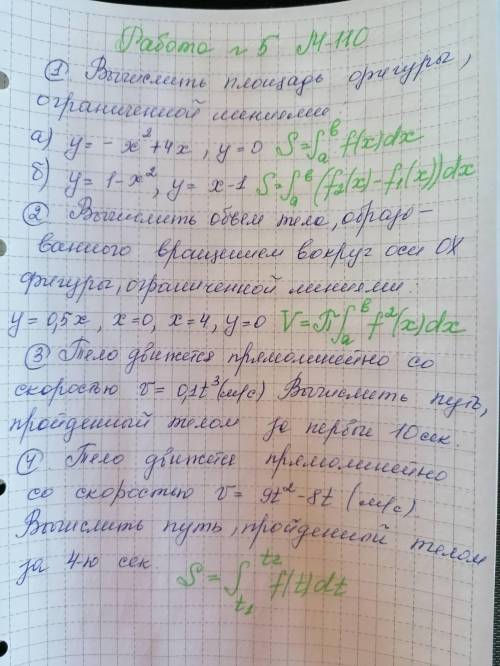 Работа № 5 М-110
① Вычислить площадь фигуры,
ограниченной линиями:
а) y = -x²+4x, y=0 S=∫ₐᵇ f(x)dx
б) y = 1-x², y = x-1 S=∫ₐᵇ(f₂(x)-f₁(x))dx
② Вычислить объем тела, образо-
ванного вращением вокруг оси OX
фигуры, ограниченной линиями:
y = 0,5x, x=0, x=4, y=0 V=П∫ₐᵇ f²(x)dx
③ Тело движется прямолинейно со
скоростью v = 0,1t³(м/с) Вычислить путь,
пройденный телом за первые 10 сек.
④ Тело движется прямолинейно
со скоростью v = 9t²-8t (м/с).
Вычислить путь, пройденный телом
за 4-ю сек. S = ∫ₜ₁ᵗ² f(t)dt